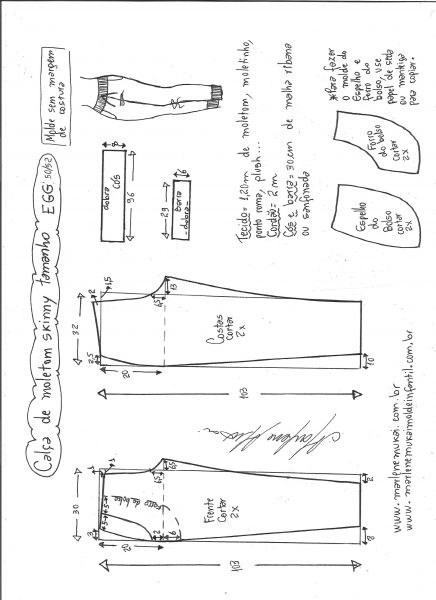 Calça de moletom skinny tamanho EGG 50/52
Molde sem margem
de costura
8
dobra
cós
96
6
29
barra
dobra
Tecido = 1,20m de moletom, moletinho,
ponto roma, plush...
Cordão = 2 m
Cós e barra = 30cm de malha ribana
ou sanfonada
*Para fazer
o molde do
Espelho e
forro do
bolso, use
papel de seda
ou manteiga
para copiar.
Forro
do bolso
cortar
2x
Espelho
do
Bolso
cortar
2x
32
2,5
2
1,5
6,5
13
20
Costas
cortar
2x
10
103
30
3
1
1
5
5
6,5
6,5
Forro do bolso
2
6
20
Frente
cortar
2x
2
8
103
www.marlenemukai.com.br
www.marlenemukaimoldeinfantil.com.br